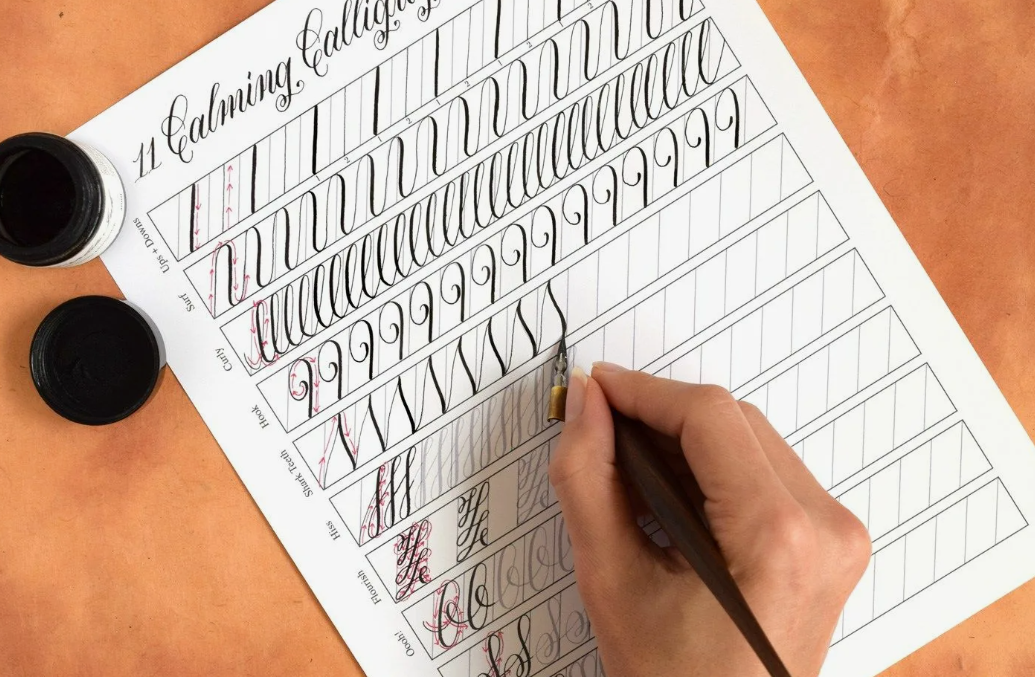 11 Calming Calligra
Ups + Downs
Surf
Curly
Hook
Shark Teeth
Hiss
Flourish
Oooh!